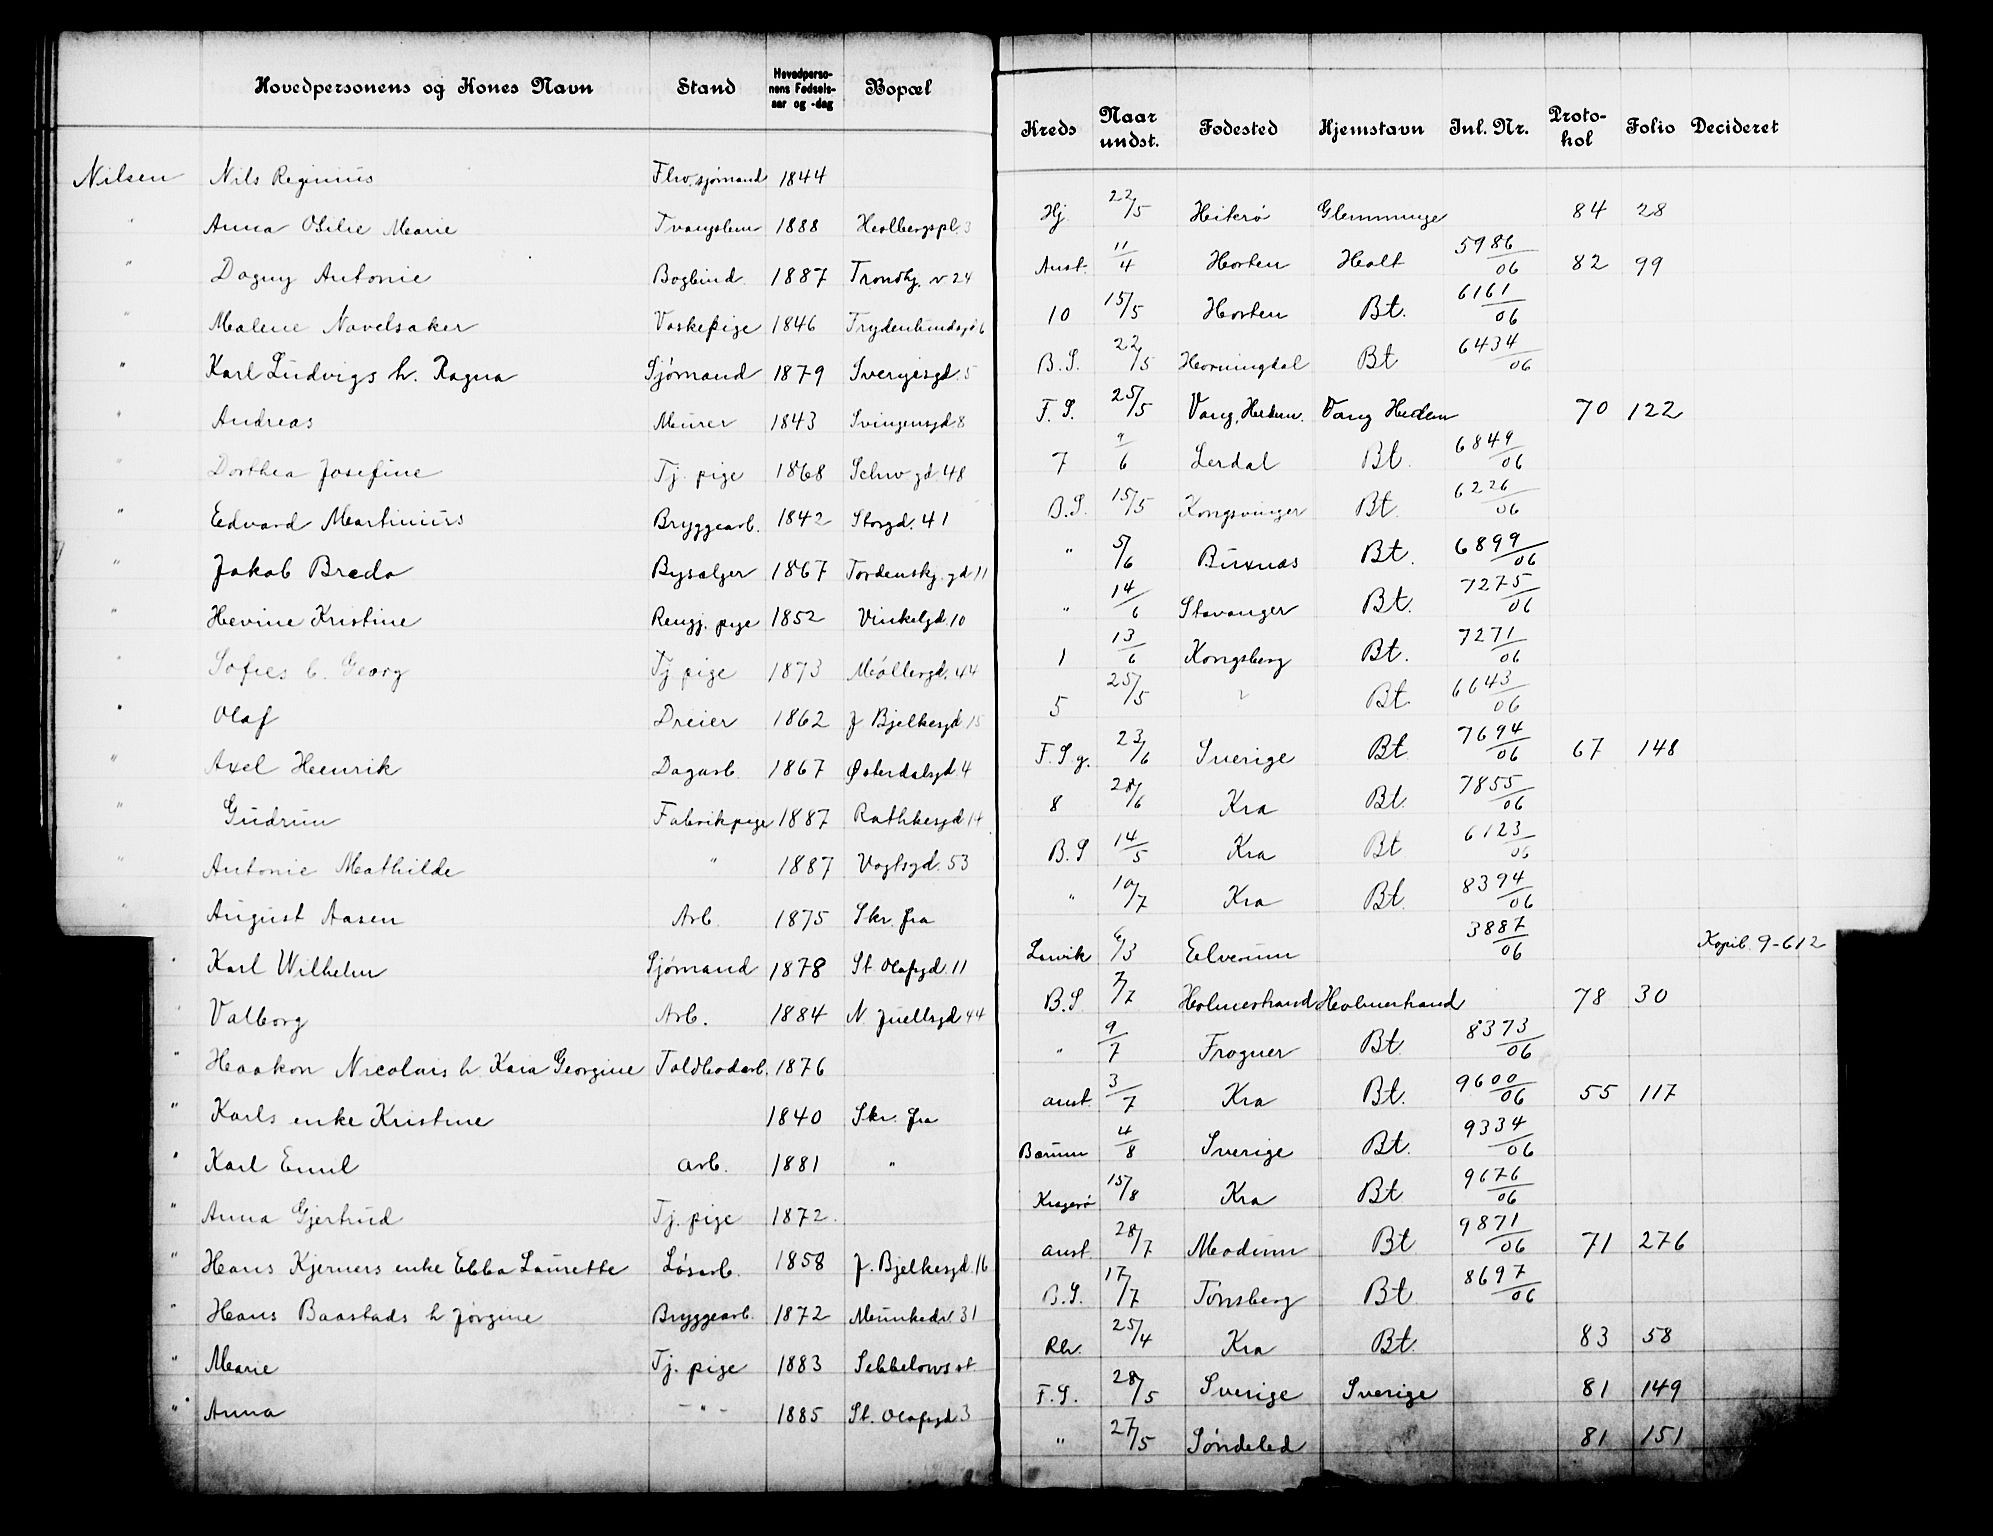 Hovedpersonens og Kones Navn Stand Hovedpersonens Fødselsaar og -dag Bopæl Kreds Naar undst. Fødested Hjemstavn Inl. Nr. Protokol Folio Decideret
Nilsen Nils Reginius Flw. sjømand 1844 Hj. 22/5 Hitterø Glemminge 84 28
" Anna Otilie Marie Tvangslem 1888 Holbergspl. 3 Anst. 11/4 Horten Holt 5986/06 82 99
" Dagny Antonie Bogbind. 1887 Trondhj. v 24 10 15/5 Horten Bt. 6161/06
" Malene Navelsaker Vaskepige 1846 Frydenlundsgd 6 B.S. 22/5 Horningdal Bt 6434/06
" Karl Ludvigs h. Ragna Sjømand 1879 Sverigesgd. 5 F.S. 25/5 Vang, Hedem. Vang Hedem 70 122
" Andreas Murer 1843 Svingensgd 8 7 9/6 Lerdal Bt. 6849/06
" Dorthea Josefine Tj. pige 1868 Schw gd 48 B.S. 15/5 Kongsvinger Bt. 6226/06
" Edvard Martinius Bryggearb. 1842 Storgd. 41 " 5/6 Buxnæs Bt. 6899/06
" Jakob Breda Bysælger 1867 Tordenskj. gd 11 " 14/6 Stavanger Bt. 7275/06
" Hevine Kristine Rengj. pige 1852 Vinkelgd 10 1 13/6 Kongsberg Bt. 7271/06
" Sofies b. Georg Tj pige 1873 Møllergd. 44 5 25/5 " Bt 6643/06
" Olaf Dreier 1862 J Bjelkesgd 15 F.Sg. 23/6 Sverige Bt 7694/06 67 148
" Axel Henrik Dagarb. 1867 Østerdalsgd. 4 8 28/6 Kra Bt. 7855/06
" Gudrun Fabrikpige 1887 Rathkesgd 14 B.S 14/5 Kra Bt 6123/06
" Antonie Mathilde " 1887 Vogtsgd. 53 " 10/7 Kra Bt. 8394/06
" August Aasen Arb. 1875 Skr. fra Larvik 6/3 Elverum 3887/06 Kopib. 9-612
" Karl Wilhelm Sjømand 1878 St Olafsgd. 11 B.S. 7/7 Holmestrand Holmestrand 78 30
" Valborg Arb. 1884 N. Juellsgd 44 " 9/7 Frogner Bt. 8373/06
" Haakon Nicolais h. Kaia Georgine Toldbodarb. 1876 anst. 3/7 Kra Bt. 9600/06 55 117
" Karls enke Kristine 1840 Skr. fra Bærum 4/8 Sverige Bt. 9334/06
" Karl Emil arb. 1881 " Kragerø 15/8 Kra Bt 9676/06
" Anna Gjertrud Tj. pige 1872. anst. 28/7 Modum Bt 9871/06 71 276
" Hans Kjerners enke Ebba Laurette Løsarb. 1858 J. Bjelkesgd. 16 B.S. 17/7 Tønsberg Bt 8697/06
" Hans Baastads h Jørgine Bryggearb. 1872 Munkedv. 31 Rh. 25/4 Kra Bt. 83 58
" Marie Tj. pige 1883 Sebbelows st F.S. 28/5 Sverige Sverige 81 149
" Anna -"- 1885 St. Olafsgd 3 " 27/5 Søndeled 81 151